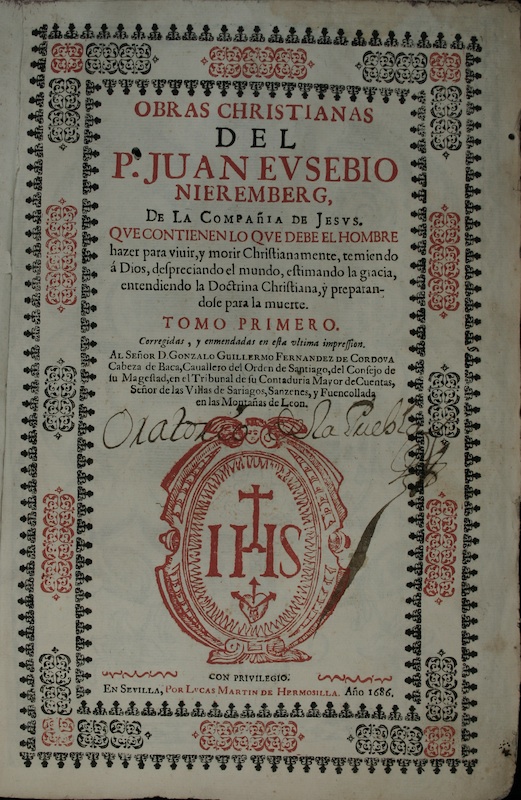 OBRAS CHRISTIANAS
DEL
P. JUAN EVSEBIO
NIEREMBERG,
DE LA COMPAÑIA DE JESVS.
QVE CONTIENEN LO QVE DEBE EL HOMBRE
hazer para viuir, y morir Chriſtianamente, temiendo
á Dios, deſpreciando el mundo, eſtimando la gracia,
entendiendo la Doctrina Chriſtiana, ÿ preparan-
doſe para la muerte.
TOMO PRIMERO.
Corregidas, y enmendadas en eſta vltima impreſsion.
AL SEÑOR D. GONZALO GUILLERMO FERNANDEZ DE CORDOVA
Cabeza de Baca, Cauallero del Orden de Santiago, del Conſejo de
ſu Mageſtad, en el Tribunal de ſu Contaduria Mayor de Cuentas,
Señor de las Villas de Sariagos, Sanzenes, y Fuencollada
en las Montañas de Leon.
Oratorio de la Puebla
IHS
CON PRIVILEGIO.
EN SEVILLA, POR LVCAS MARTIN DE HERMOSILLA. Año 1686.